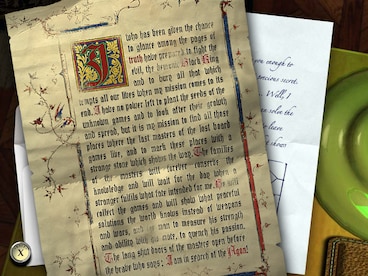 I who has been given the chance
to glance among the pages of
truth have prepared to fight the
evil, the demonic Black King
and to bury all that which
tempts all our lives when my mission comes to its
end. I have no power left to plant the seeds of the
unknown games and to look after their growth
and spread, but it is my mission to find all those
places where the last masters of the last board
games live, and to mark these places with a
strange stone which shows the way. The families
of the masters will forever conserve the
knowledge and will wait for the day when a
stranger fulfils what fate intended for me. He will
collect the games and will show what peaceful
solutions the world knows instead of weapons
and wars, for men to measure his strength
and ability with his mate, to quench his passion,
The long shut doors of the masters open before
the brave who says: I am in search of the Again!
you enough to
precious secret.
Well, I
can solve the
learn
shows
X